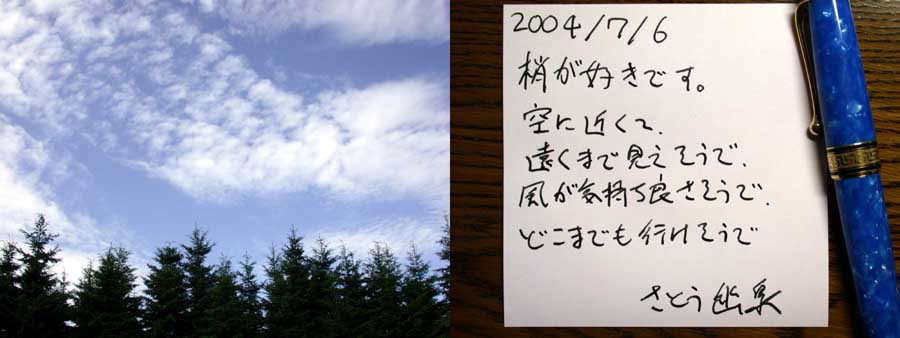 2004/7/6
梢が好きです。
空に近くて、
遠くまで見えそうで、
風が気持ち良さそうで、
どこまでも行けそうで
さとう